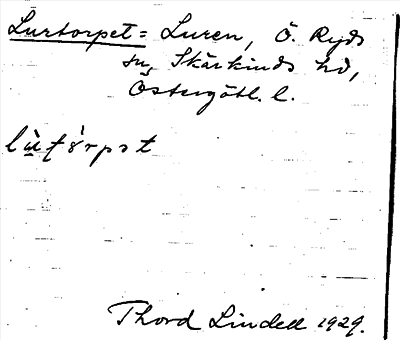 Lurtorpet = Luren, Ö. Ryds
sn, Skärkinds hd,
Östergötl. l.
Thord Lindell 1929.